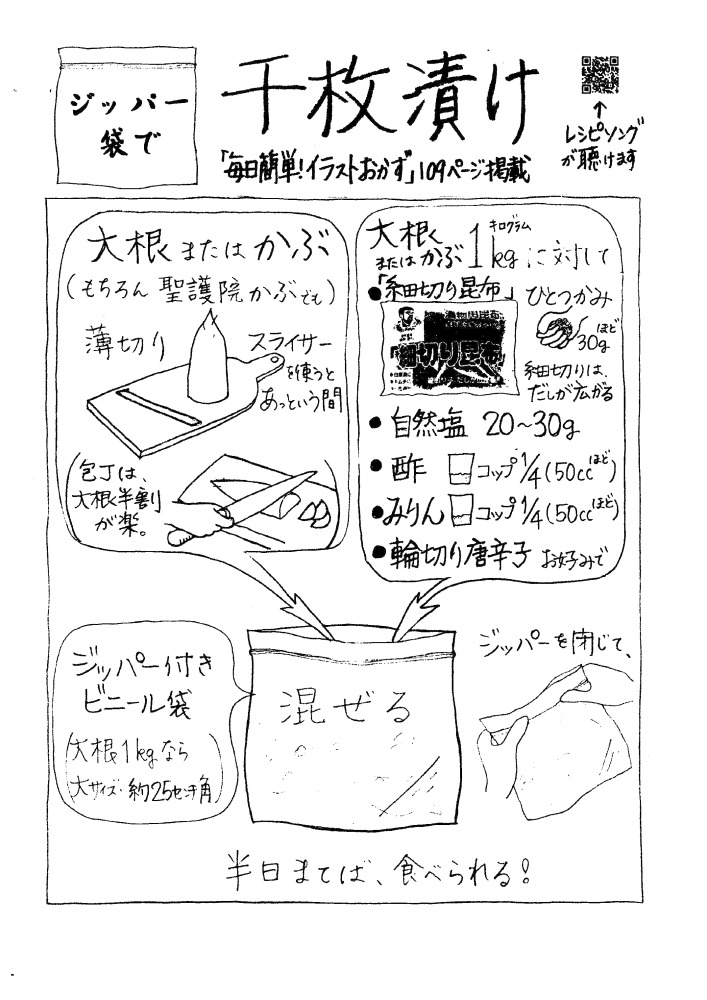 ジッパー
袋で
千枚漬け
「毎日簡単!イラストおかず」109ページ掲載
↑
レシピソング
が聴けます
大根またはかぶ
(もちろん聖護院かぶでも)
薄切り
スライサー
を使うと
あっという間
(包丁は、
大根半割
が楽。)
大根
またはかぶ1kgに対して
キログラム
●「細切り昆布」ひとつかみ
ほど
30g
漬物用昆布
「細切り昆布」
細切りは、
だしが広がる
●自然塩 20〜30g
●酢 コップ1/4(50ccほど)
●みりん コップ1/4(50ccほど)
●輪切り唐辛子 お好みで
ジッパー付き
ビニール袋
(大根1kgなら
大サイズ・約25センチ角)
混ぜる
ジッパーを閉じて、
半日まてば、食べられる!